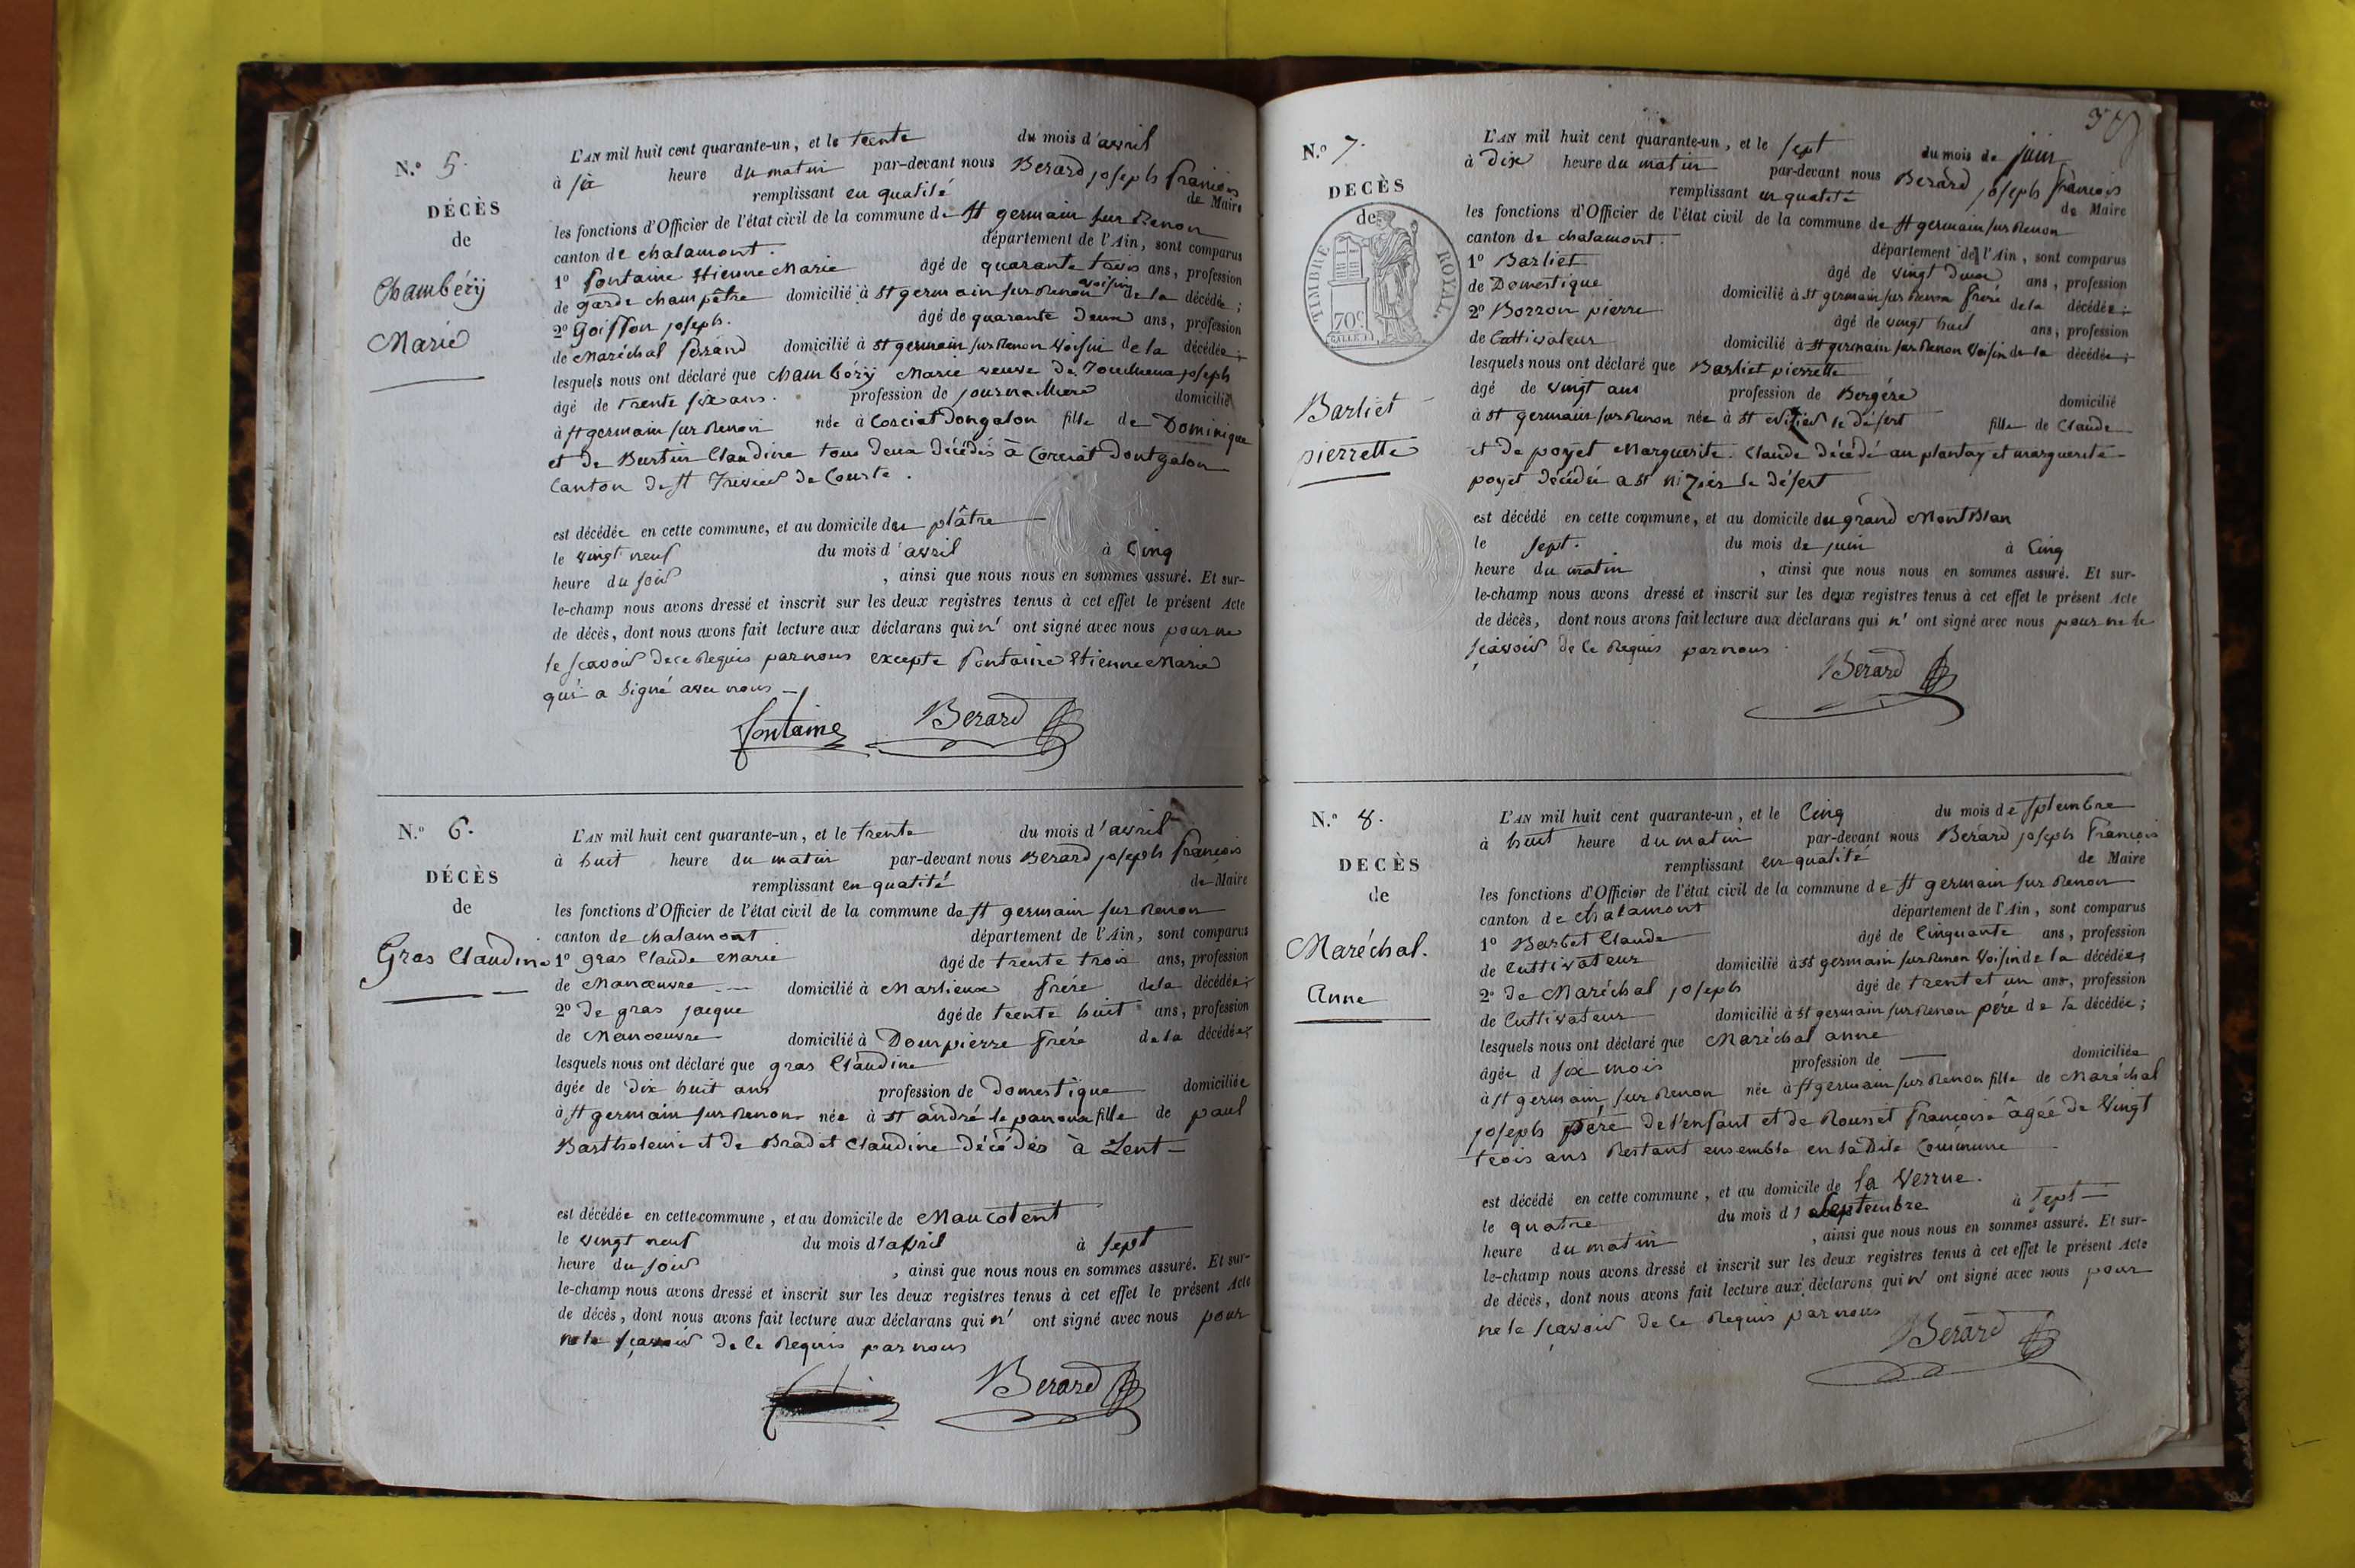 N.° 5.
DÉCÈS
de
Chambéry
Marie
L'AN mil huit cent quarante-un, et le trente du mois d'avril
à six heure du matin par-devant nous Berard joseph françois
remplissant en qualité de Maire
les fonctions d'Officier de l'état civil de la commune de st germain sur Renon
canton de chalamont. département de l'Ain, sont comparus
1° fontaine Etienne Marie âgé de quarante trois ans, profession
de garde champêtre domicilié à st germain sur Renon voisin de la décédée;
2° Goiffon joseph. âgé de quarante deux ans, profession
de Maréchal ferrand domicilié à st germain sur Renon Voisin de la décédée;
lesquels nous ont déclaré que Chambéry Marie veuve de joseph
âgé de trente six ans. profession de journalliere domicilié
à st germain sur Renon née à Corciat Dongalon fille de Dominique
et de Burtin Claudine tous deux décédés à Corciat Dontgalon
Canton de st Trivier de Courte.
est décédée en cette commune, et au domicile du plâtre
le vingt neuf du mois d'avril à Cinq
heure du soir, ainsi que nous nous en sommes assuré. Et sur-
le-champ nous avons dressé et inscrit sur les deux registres tenus à cet effet le présent Acte
de décès, dont nous avons fait lecture aux déclarans qui n' ont signé avec nous pour ne
le scavoir de ce Requis par nous excepte fontaine Etienne Marie
qui a signé avec nous
fontaine Berard
N.° 6.
DÉCÈS
de
Gras Claudine
L'AN mil huit cent quarante-un, et le trente du mois d'avril
à huit heure du matin par-devant nous Berard joseph françois
remplissant en qualité de Maire
les fonctions d'Officier de l'état civil de la commune de st germain sur Renon
canton de chalamont département de l'Ain, sont comparus
1° gras Claude Marie âgé de trente trois ans, profession
de Manœuvre domicilié à Marlieux frére de la décédée;
2° de gras jacque âgé de trente huit ans, profession
de Manoeuvre domicilié à Dompierre frére de la décédée;
lesquels nous ont déclaré que gras Claudine
âgée de dix huit ans profession de Domestique domiciliée
à st germain sur Renon née à st andré le panoux fille de paul
Bartholemi et de Bradet Claudine décédés à Lent
est décédée en cette commune, et au domicile de Maucotent
le vingt neuf du mois d'avril à sept
heure du soir, ainsi que nous nous en sommes assuré. Et sur-
le-champ nous avons dressé et inscrit sur les deux registres tenus à cet effet le présent Acte
de décès, dont nous avons fait lecture aux déclarans qui n' ont signé avec nous pour
ne le sçavoir de ce Requis par nous
Berard
N.° 7.
DECÈS
de
TIMBRE ROYAL
70c
Barliet
pierrette
L'AN mil huit cent quarante-un, et le sept du mois de juin
à dix heure du matin par-devant nous Berard joseph françois
remplissant en qualité de Maire
les fonctions d'Officier de l'état civil de la commune de st germain sur Renon
canton de chalamont. département de l'Ain, sont comparus
1° Barliet âgé de vingt deux ans, profession
de Domestique domicilié à st germain sur Renon frére de la décédée;
2° Borron pierre âgé de vingt huit ans, profession
de Cultivateur domicilié à st germain sur Renon Voisin de la décédée;
lesquels nous ont déclaré que Barliet pierrette
âgé de vingt ans profession de Bergére domicilié
à st germain sur Renon née à st Nizier le désert fille de Claude
et de poyet Marguerite. Claude décédé au plantay et marguerite
poyet décédée a st Nizier le désert
est décédé en cette commune, et au domicile du grand Mont Blan
le sept. du mois de juin à Cinq
heure du matin, ainsi que nous nous en sommes assuré. Et sur-
le-champ nous avons dressé et inscrit sur les deux registres tenus à cet effet le présent Acte
de décès, dont nous avons fait lecture aux déclarans qui n' ont signé avec nous pour ne le
sçavoir de ce Requis par nous
Berard
N.° 8.
DECÈS
de
Maréchal.
Anne
L'AN mil huit cent quarante-un, et le Cinq du mois de sptembre
à huit heure du matin par-devant nous Berard joseph François
remplissant en qualité de Maire
les fonctions d'Officier de l'état civil de la commune de st germain sur Renon
canton de chalamont département de l'Ain, sont comparus
1° Barbet Claude âgé de Cinquante ans, profession
de Cultivateur domicilié à st germain sur Renon Voisin de la décédée;
2° de Maréchal joseph âgé de trent et un ans, profession
de Cultivateur domicilié à st germain sur Renon pére de la décédée;
lesquels nous ont déclaré que Maréchal anne
âgée d six mois profession de domiciliée
à st germain sur Renon née à st germain sur Renon fille de Maréchal
joseph pére de l'enfant et de Rousset françoise âgée de Vingt
trois ans Restant ensemble en la Dite Commune
est décédé en cette commune, et au domicile de la Verrue.
le quatre du mois d septembre à sept
heure du matin, ainsi que nous nous en sommes assuré. Et sur-
le-champ nous avons dressé et inscrit sur les deux registres tenus à cet effet le présent Acte
de décès, dont nous avons fait lecture aux déclarans qui n' ont signé avec nous pour
ne le sçavoir de ce Requis par nous
Berard